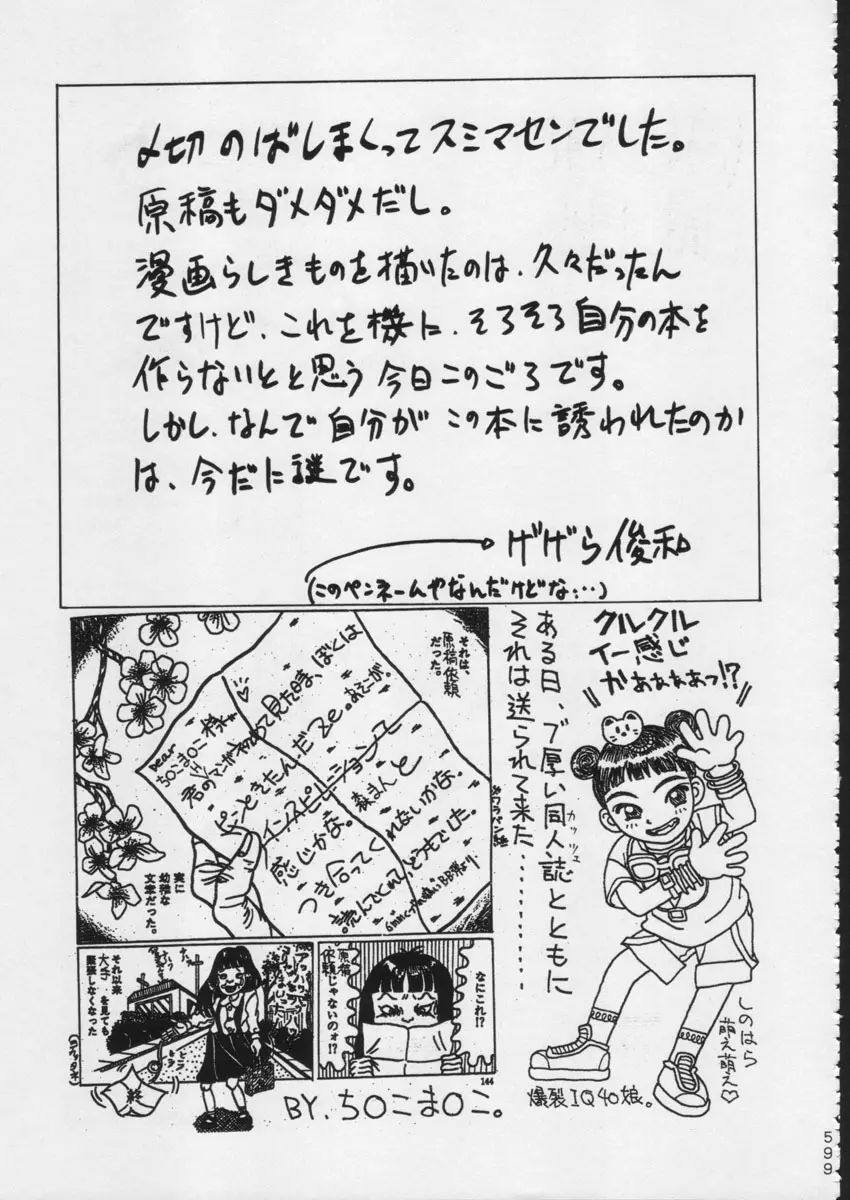 〆切のばしまくってスミマセンでした。
原稿もダメダメだし。
漫画らしきものを描いたのは、久々だったん
ですけど、これを機に、そろそろ自分の本を
作らないとと思う今日このごろです。
しかし、なんで自分がこの本に誘われたのか
は、今だに謎です。
げげら俊和
(このペンネームやなんだけどな…)
クルクル
イー感じ
かぁぁぁぁっ!?
ある日、ブ厚い同人誌とともに
カッツェ
それは送られて来た…………
それは、
原稿依頼
だった。
dear
ち〇こま〇こ様♡
君のマンガ
って見た時、ぼくは
ピンときたんだZe。
インスピレーション
感じかな。
森まんと
つき合ってくれないかな。
読んでくれて、どうもでした。
※ワラバン紙
実に
幼稚な
文章だった。
なにこれ!?
原稿
依頼じゃないのォ!?
144
それ以来
大手を見ても
緊張しなくなった
終
BY. ち〇こま〇こ。
しのはら
萌え萌え♡
爆裂IQ40娘。
599